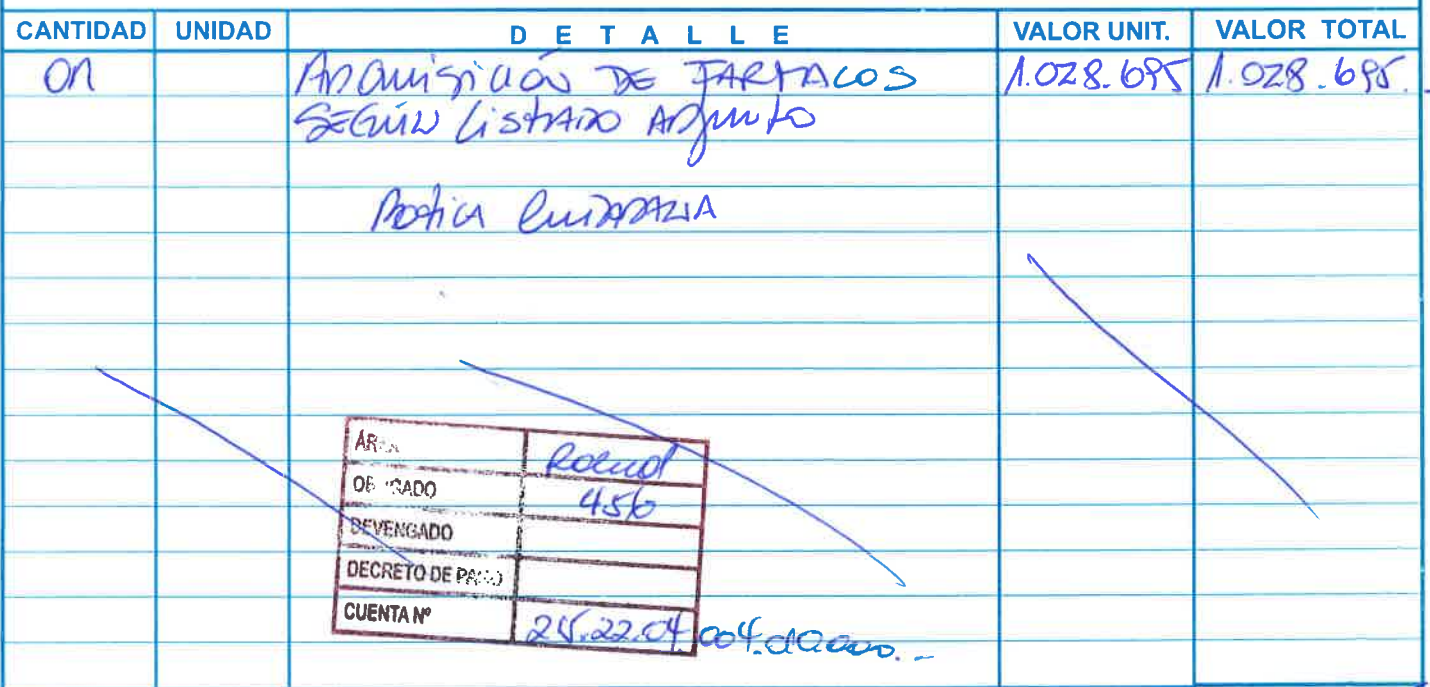 CANTIDAD UNIDAD DETALLE VALOR UNIT. VALOR TOTAL
01 ADQUISICIÓN DE FARMACOS 1.028.695 1.028.695.-
SEGÚN LISTADO ADJUNTO
Botica CIUDADANA
ÁREA Salud
OBLIGADO 456
DEVENGADO
DECRETO DE PAGO
CUENTA Nº 215.22.04.004.